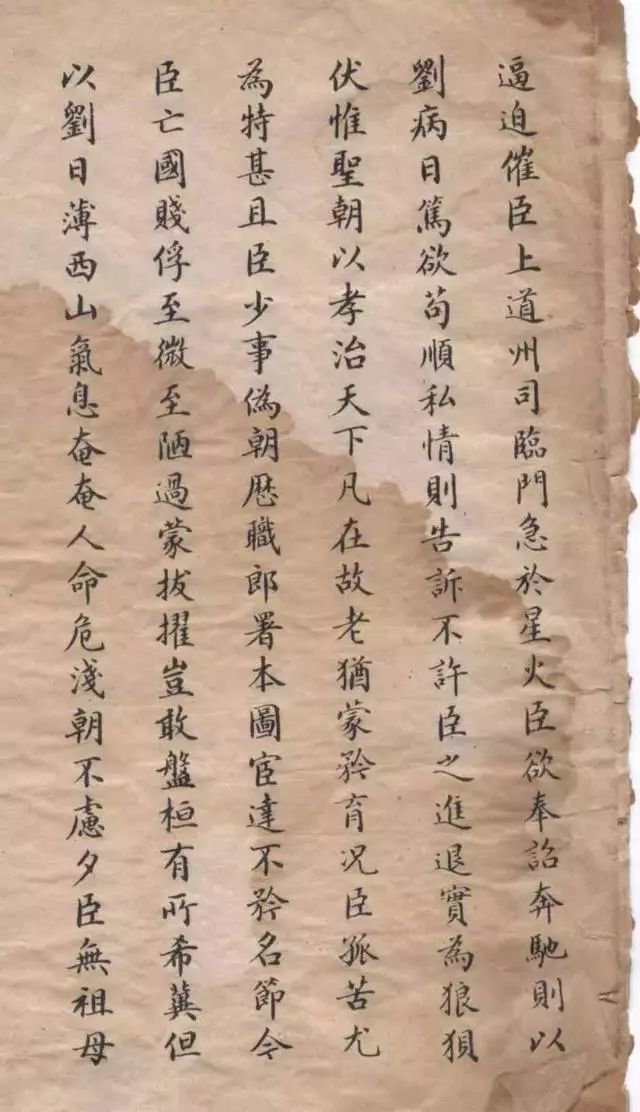 逼迫催臣上道州司臨門急於星火臣欲奉詔奔馳則以
劉病日篤欲苟順私情則告訴不許臣之進退實為狼狽
伏惟聖朝以孝治天下凡在故老猶蒙矜育况臣孤苦尤
為特甚且臣少事偽朝歷職郎署本圖宦達不矜名節今
臣亡國賤俘至微至陋過蒙拔擢豈敢盤桓有所希冀但
以劉日薄西山氣息奄奄人命危淺朝不慮夕臣無祖母